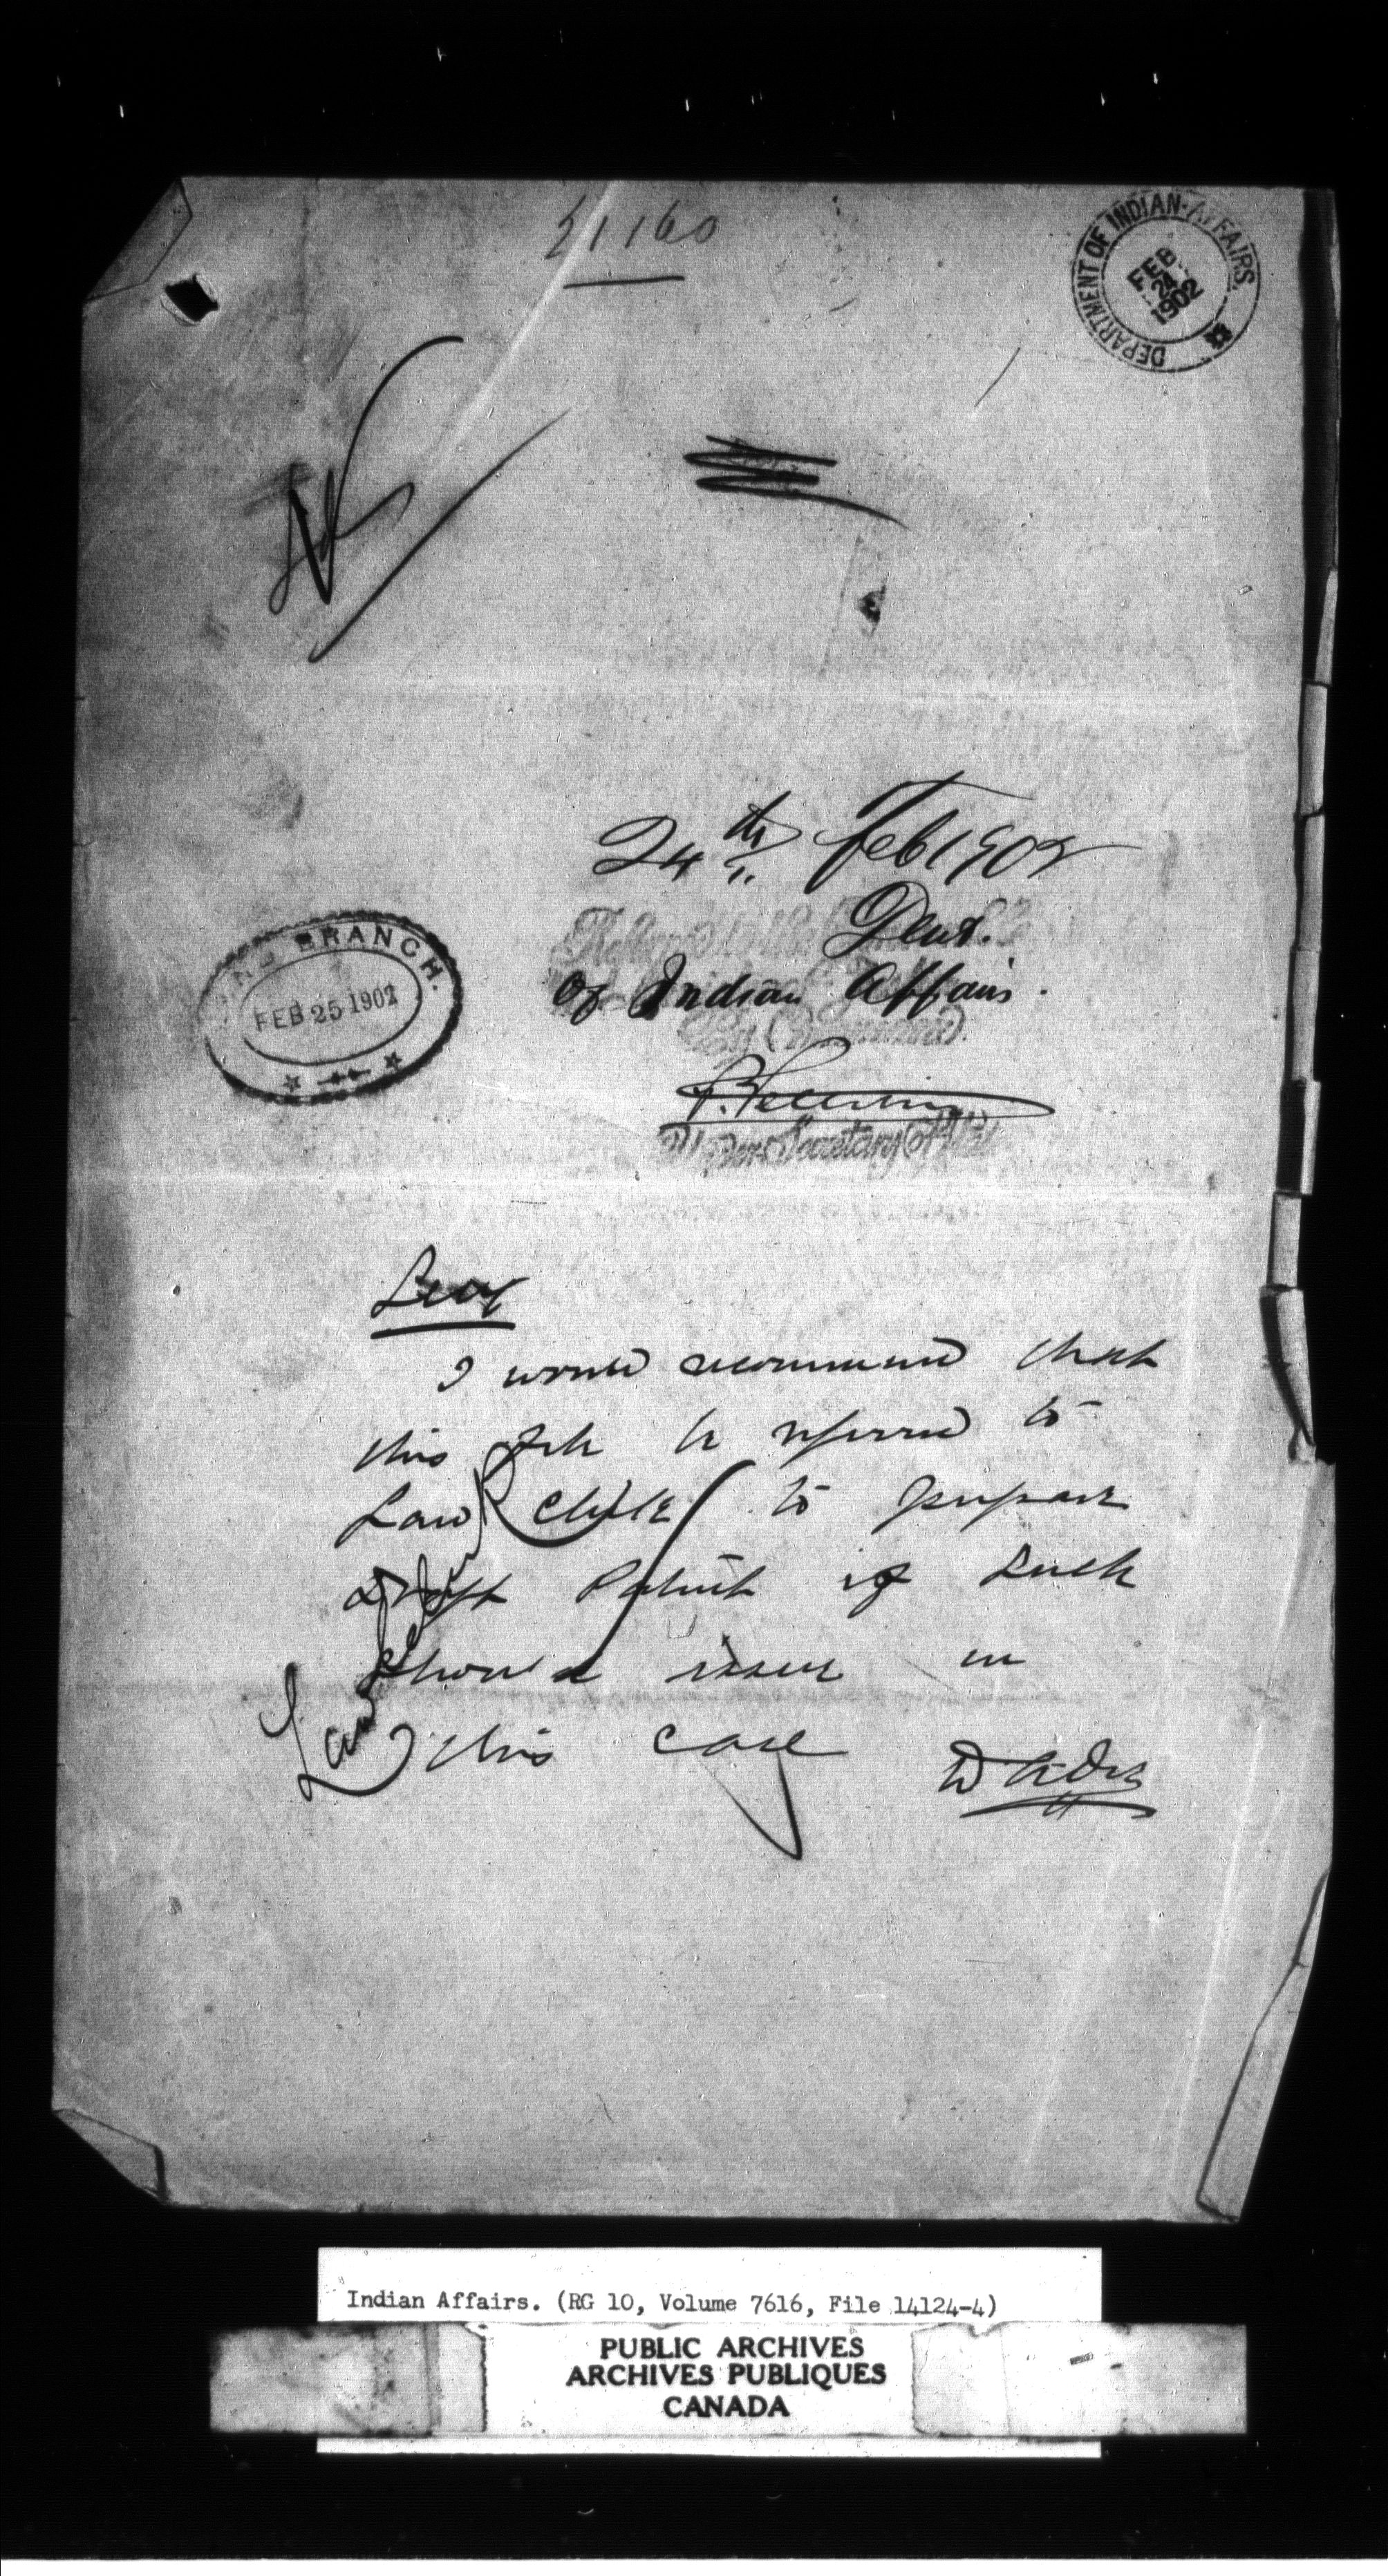 21160
DEPARTMENT OF INDIAN AFFAIRS.
FEB
24
1902
24th Feb 1902
Dept.
of Indian Affairs.
BRANCH.
FEB 25 1902
By Command
Under Secretary of State
Secy
I would recommend that
this file be referred to
Law Clerk to prepare
draft Patent if such
should issue in
this case
Law
Indian Affairs. (RG 10, Volume 7616, File 14124-4)
PUBLIC ARCHIVES
ARCHIVES PUBLIQUES
CANADA